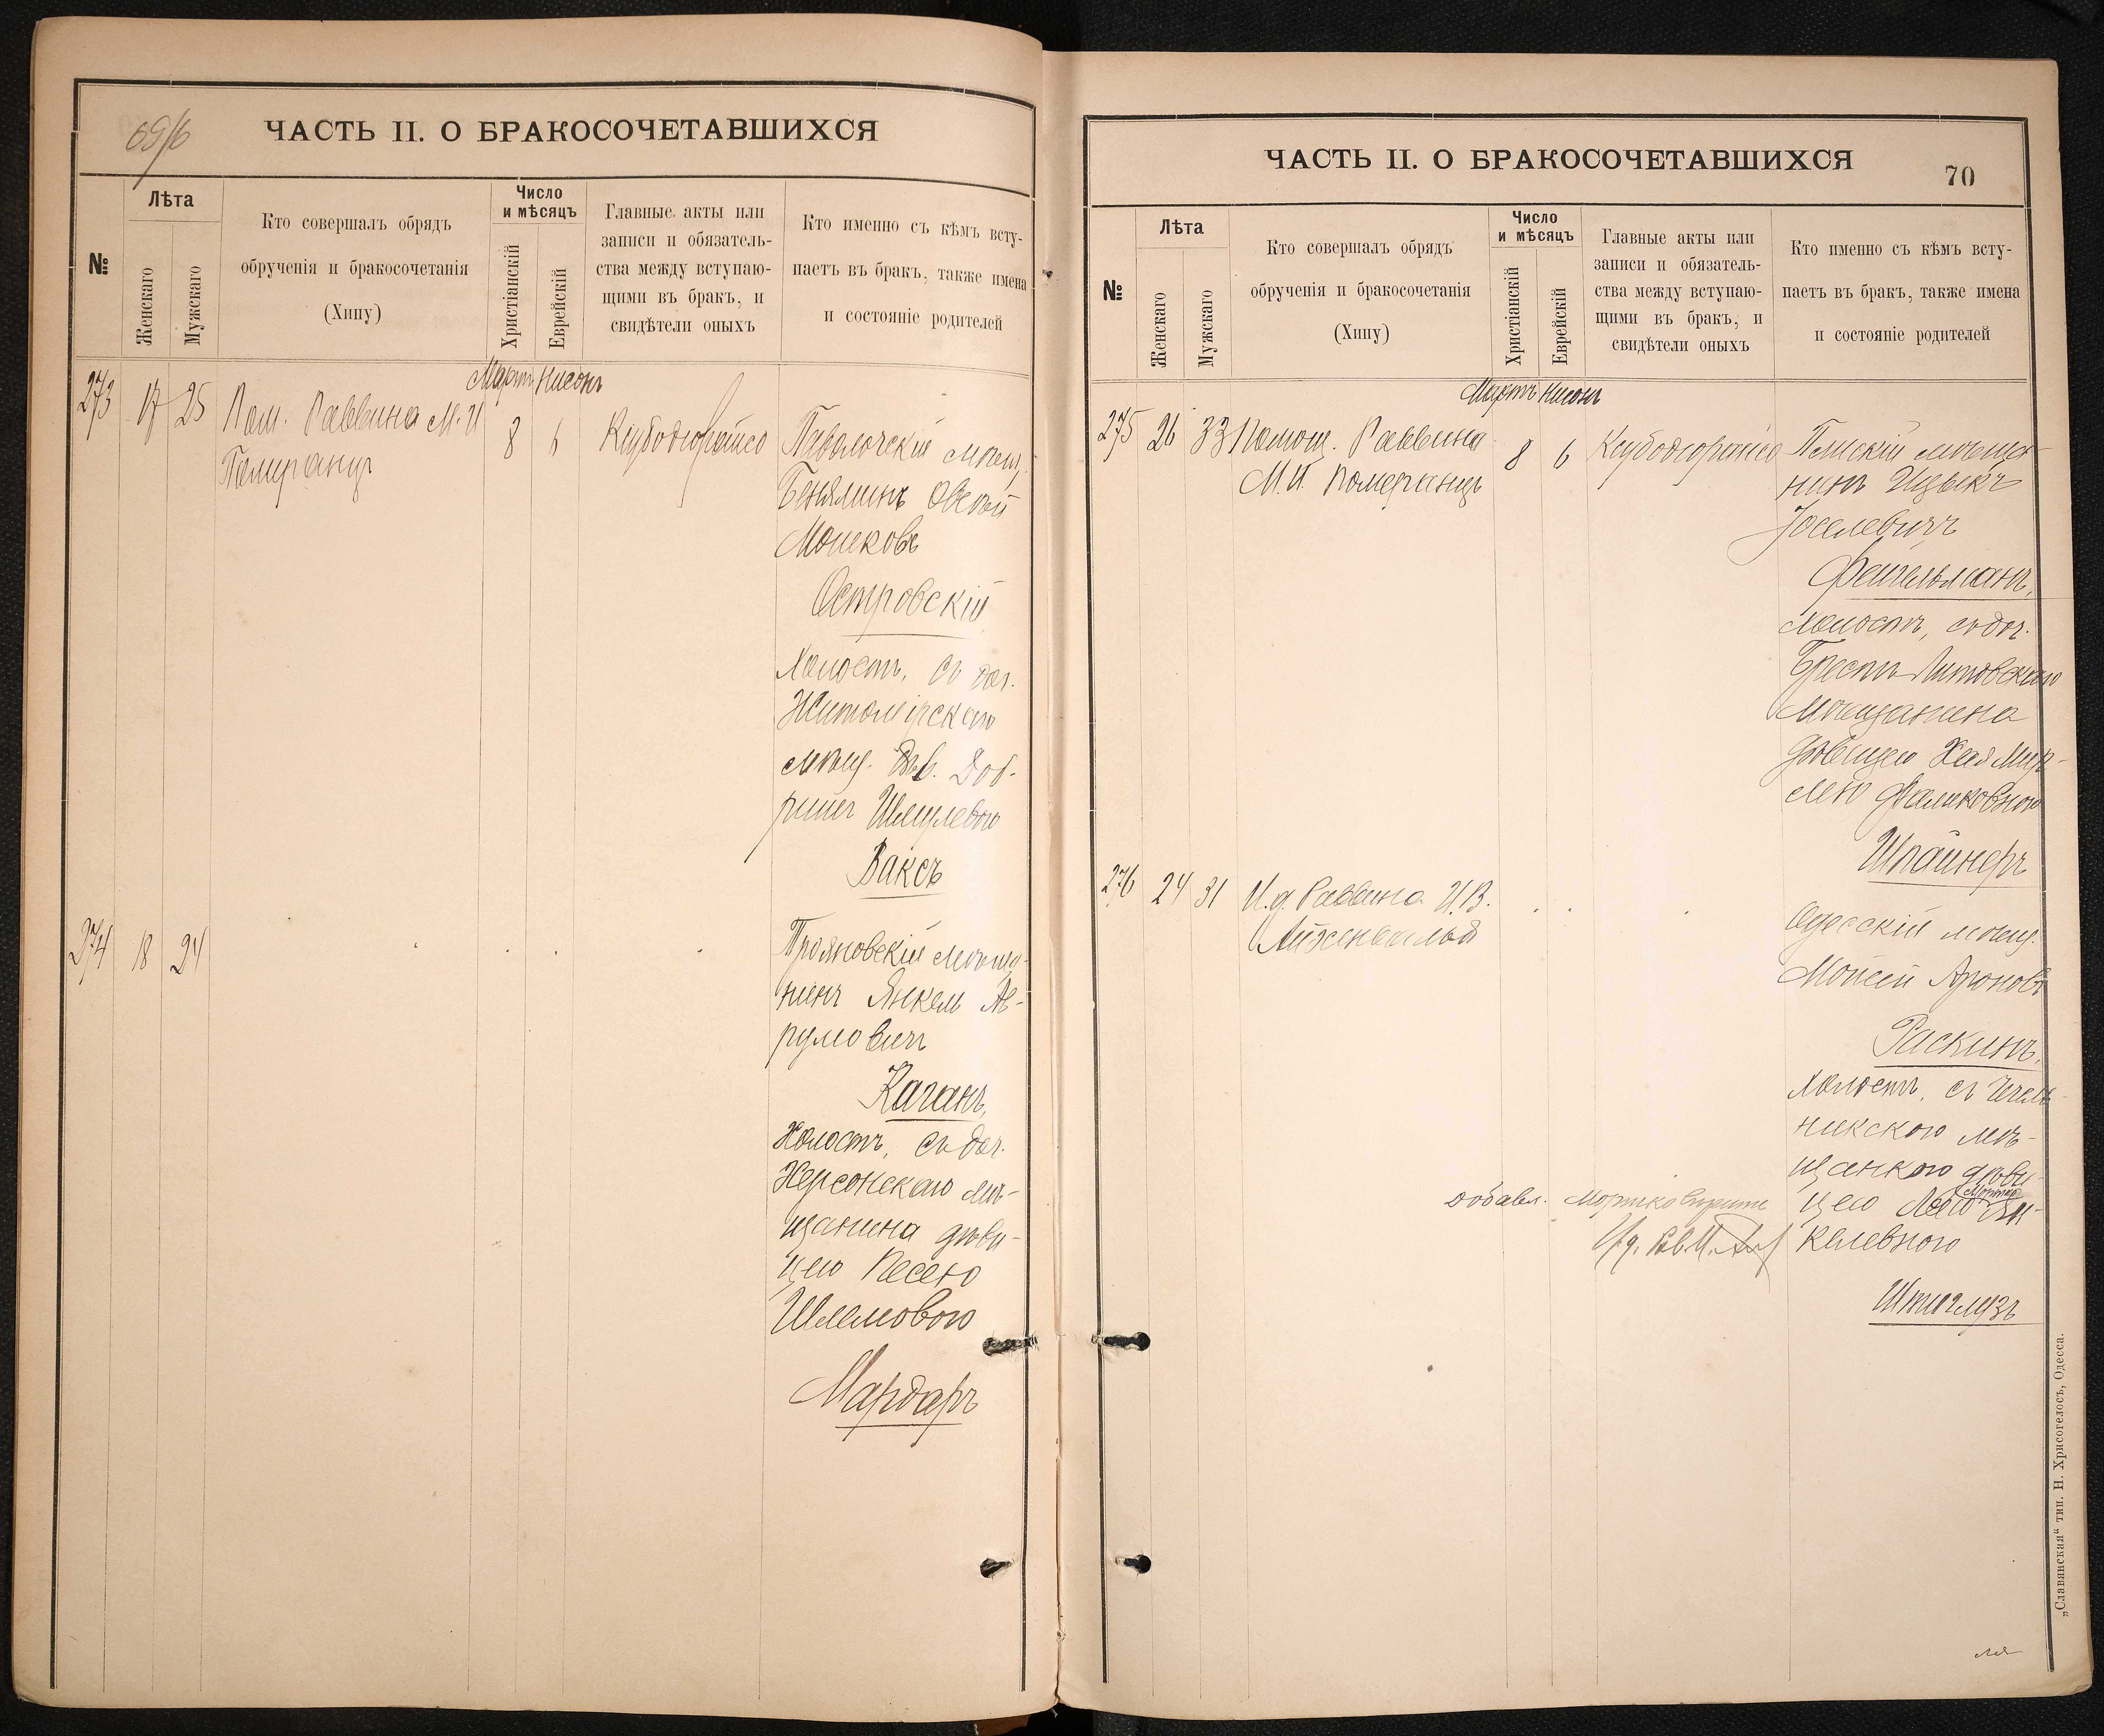 69/б
ЧАСТЬ II. О БРАКОСОЧЕТАВШИХСЯ
№
Лѣта
Женскаго
Мужскаго
Кто совершалъ обрядъ
обрученія и бракосочетанія
(Хипу)
Число
и мѣсяцъ
Христіанскій
Еврейскій
Главные акты или
записи и обязатель-
ства между вступаю-
щими въ бракъ, и
свидѣтели оныхъ
Кто именно съ кѣмъ всту-
паетъ въ бракъ, также имена
и состояніе родителей
Мартъ Нисонъ
273 17 25 Пом. Раввина М. И
Померанцъ
8 6 Ксубодіорайсо
Паволочскій мѣщ.
Беньяминъ Овсей
Мошковъ
Островскій
Холостъ, съ доч.
Житомірскаго
мѣщ. дѣв. Доб-
Шмулевою
Ваксъ
274 18 24
Трояновскій мѣща-
нинъ Янкель Ав-
румовичъ
Каганъ,
Холостъ, съ доч.
Херсонскаго мѣ-
щанина дѣви-
цею Песею
Шлемовою
Мардаръ
ЧАСТЬ II. О БРАКОСОЧЕТАВШИХСЯ
70
№
Лѣта
Женскаго
Мужскаго
Кто совершалъ обрядъ
обрученія и бракосочетанія
(Хипу)
Число
и мѣсяцъ
Христіанскій
Еврейскій
Главные акты или
записи и обязатель-
ства между вступаю-
щими въ бракъ, и
свидѣтели оныхъ
Кто именно съ кѣмъ всту-
паетъ въ бракъ, также имена
и состояніе родителей
Мартъ Нисонъ
275 26 33 Помощ. Раввина
М. И. Померанцъ
8 6 Ксубодіорайсо
мѣща-
нинъ Ицыкъ
Іоселевичъ
Фейгельманъ,
холостъ, съ доч.
Брестъ-Литовскаго
мѣщанина
дѣвицею Хая Мир-
лею Фаликовною
Шпайнеръ
276 24 31 И. д. Раввина И. В.
Айзенвальд
Одесскій мѣщ.
Мойсей Ароновъ
Раскинъ,
холостъ, съ Чечель-
никскою мѣ-
щанкою дѣви-
цею Леею Ян-
келевною
Штиглузъ
добавл.
И. д.
„Славянская“ тип. Н. Хрисогелосъ, Одесса.